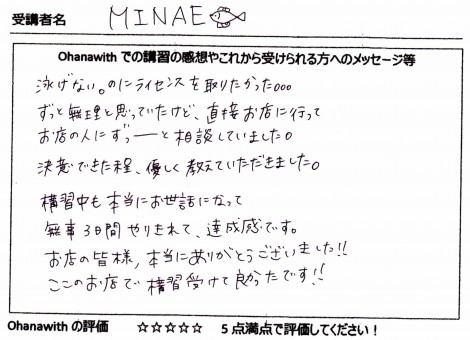 受講者名 MINAE
Ohanawith での講習の感想やこれから受けられる方へのメッセージ等
泳げない。のにライセンスを取りたかった。。。
ずっと無理と思っていたけど、直接お店に行って
お店の人にずっーーと相談していました。
決意できた程、優しく教えていただきました。
構習中も本当にお世話になって
無事3日間やりきれて、達成感です。
お店の皆様、本当にありがとうございました!!
ここのお店で構習受けて良かったです!!
Ohanawith の評価 ☆☆☆☆☆ 5点満点で評価してください!